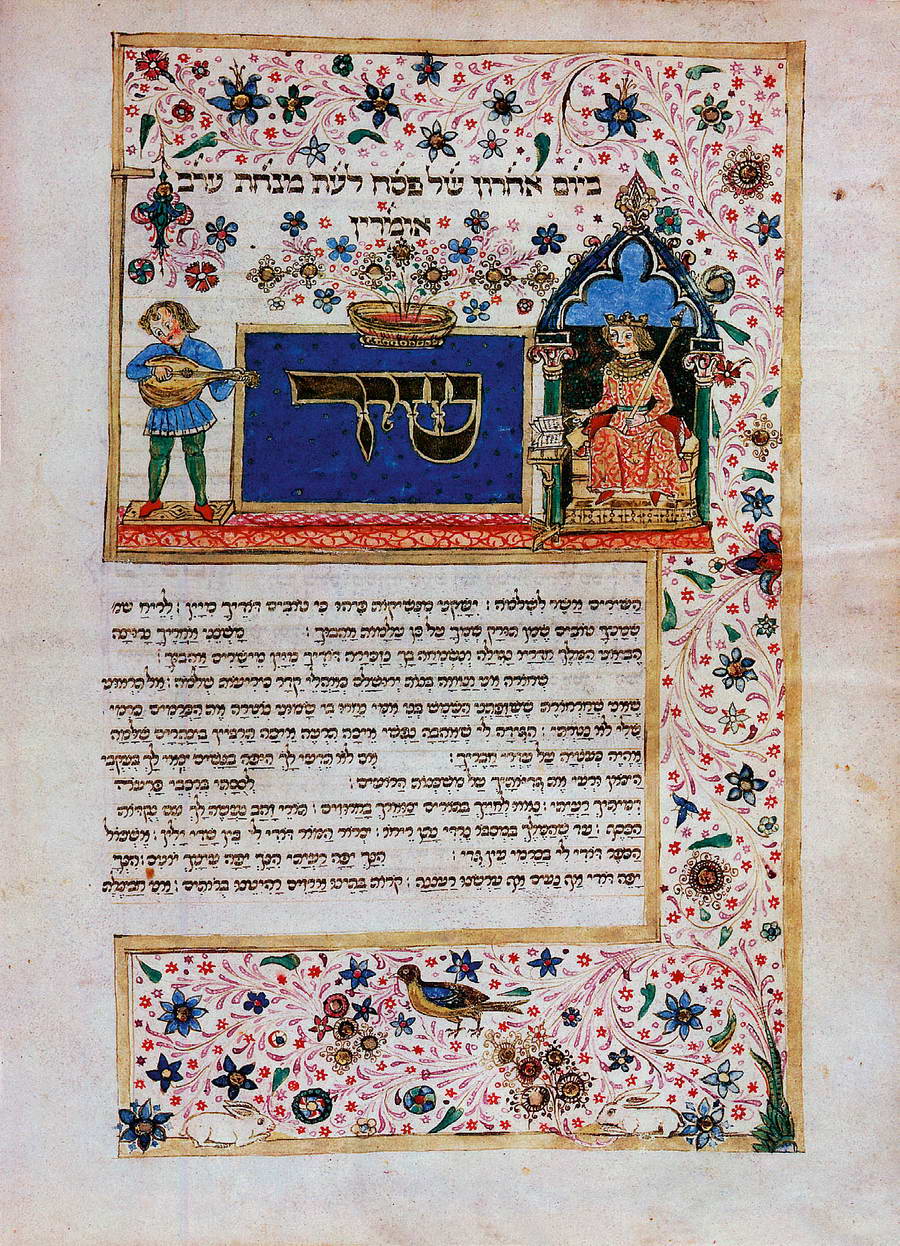 ביום אחרון של פסח לעת מנחת ערב
אומרין
שיר
השירים אשר לשלמה : ישקני מנשיקות פיהו כי טובים דודיך מיין : לריח שמ'
שמניך טובים שמן תורק שמך על כן עלמות אהבוך : משכני אחריך נרוצה
הביאני המלך חדריו נגילה ונשמחה בך נזכירה דודיך מיין מישרים אהבוך :
שחורה אני ונאוה בנות ירושלם כאהלי קדר כיריעות שלמה : אל תראוני
שאני שחרחורת ששזפתני השמש בני אמי נחרו בי שמוני נטרה את הכרמים כרמי
שלי לא נטרתי : הגידה לי שאהבה נפשי איכה תרעה איכה תרביץ בצהרים שלמה
אהיה כעטיה על עדרי חבריך : אם לא תדעי לך היפה בנשים צאי לך בעקבי
הצאן ורעי את גדיותיך על משכנות הרועים : לססתי ברכבי פרעה
דמיתיך רעיתי : נאוו לחייך בתורים צוארך בחרוזים : תורי זהב נעשה לך עם נקדות
הכסף : עד שהמלך במסבו נרדי נתן ריחו : צרור המור דודי לי בין שדי ילין : אשכול
הכפר דודי לי בכרמי עין גדי : הנך יפה רעיתי הנך יפה עיניך יונים : הנך
יפה דודי אף נעים אף ערשנו רעננה : קרות בתינו ארזים רהיטנו ברותים : אני חבצלת